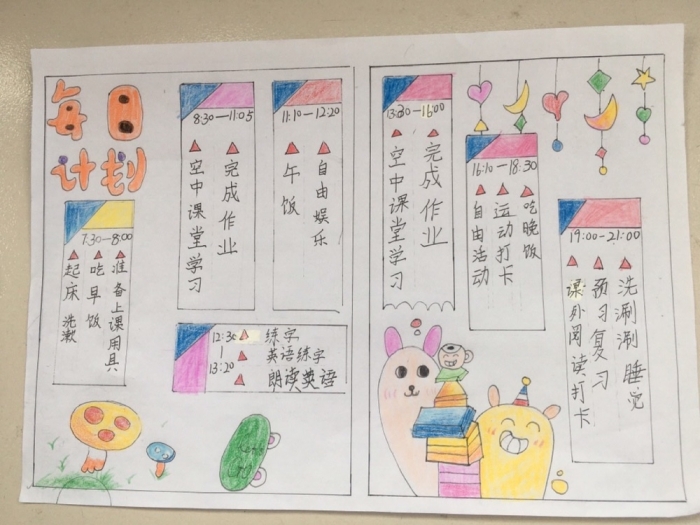 每日
计划
7:30—8:00
起床 洗漱
吃早饭
准备上课用具
8:30—11:05
空中课堂学习
完成作业
11:10—12:20
午饭
自由娱乐
12:30
|
13:20
练字
英语练字
朗读英语
13:30—16:00
空中课堂学习
完成作业
16:10—18:30
自由活动
运动打卡
吃晚饭
19:00—21:00
课外阅读打卡
预习复习
洗涮涮 睡觉